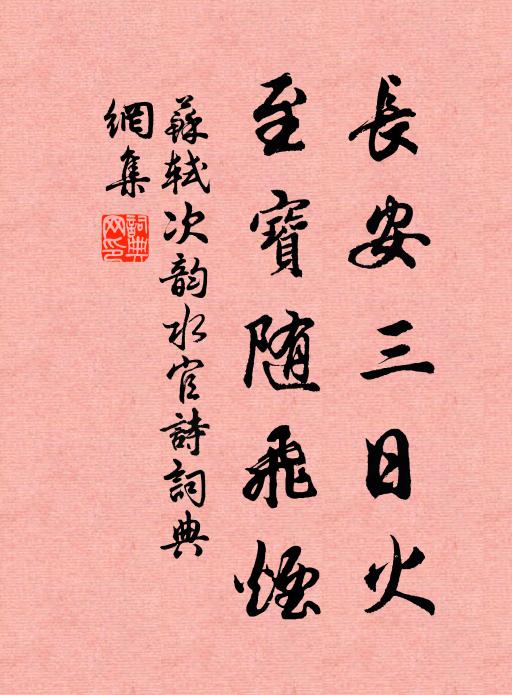 長安三日火
至寶随飛煙
蘇軾次韵水官詩詞典
網集
詞典網印